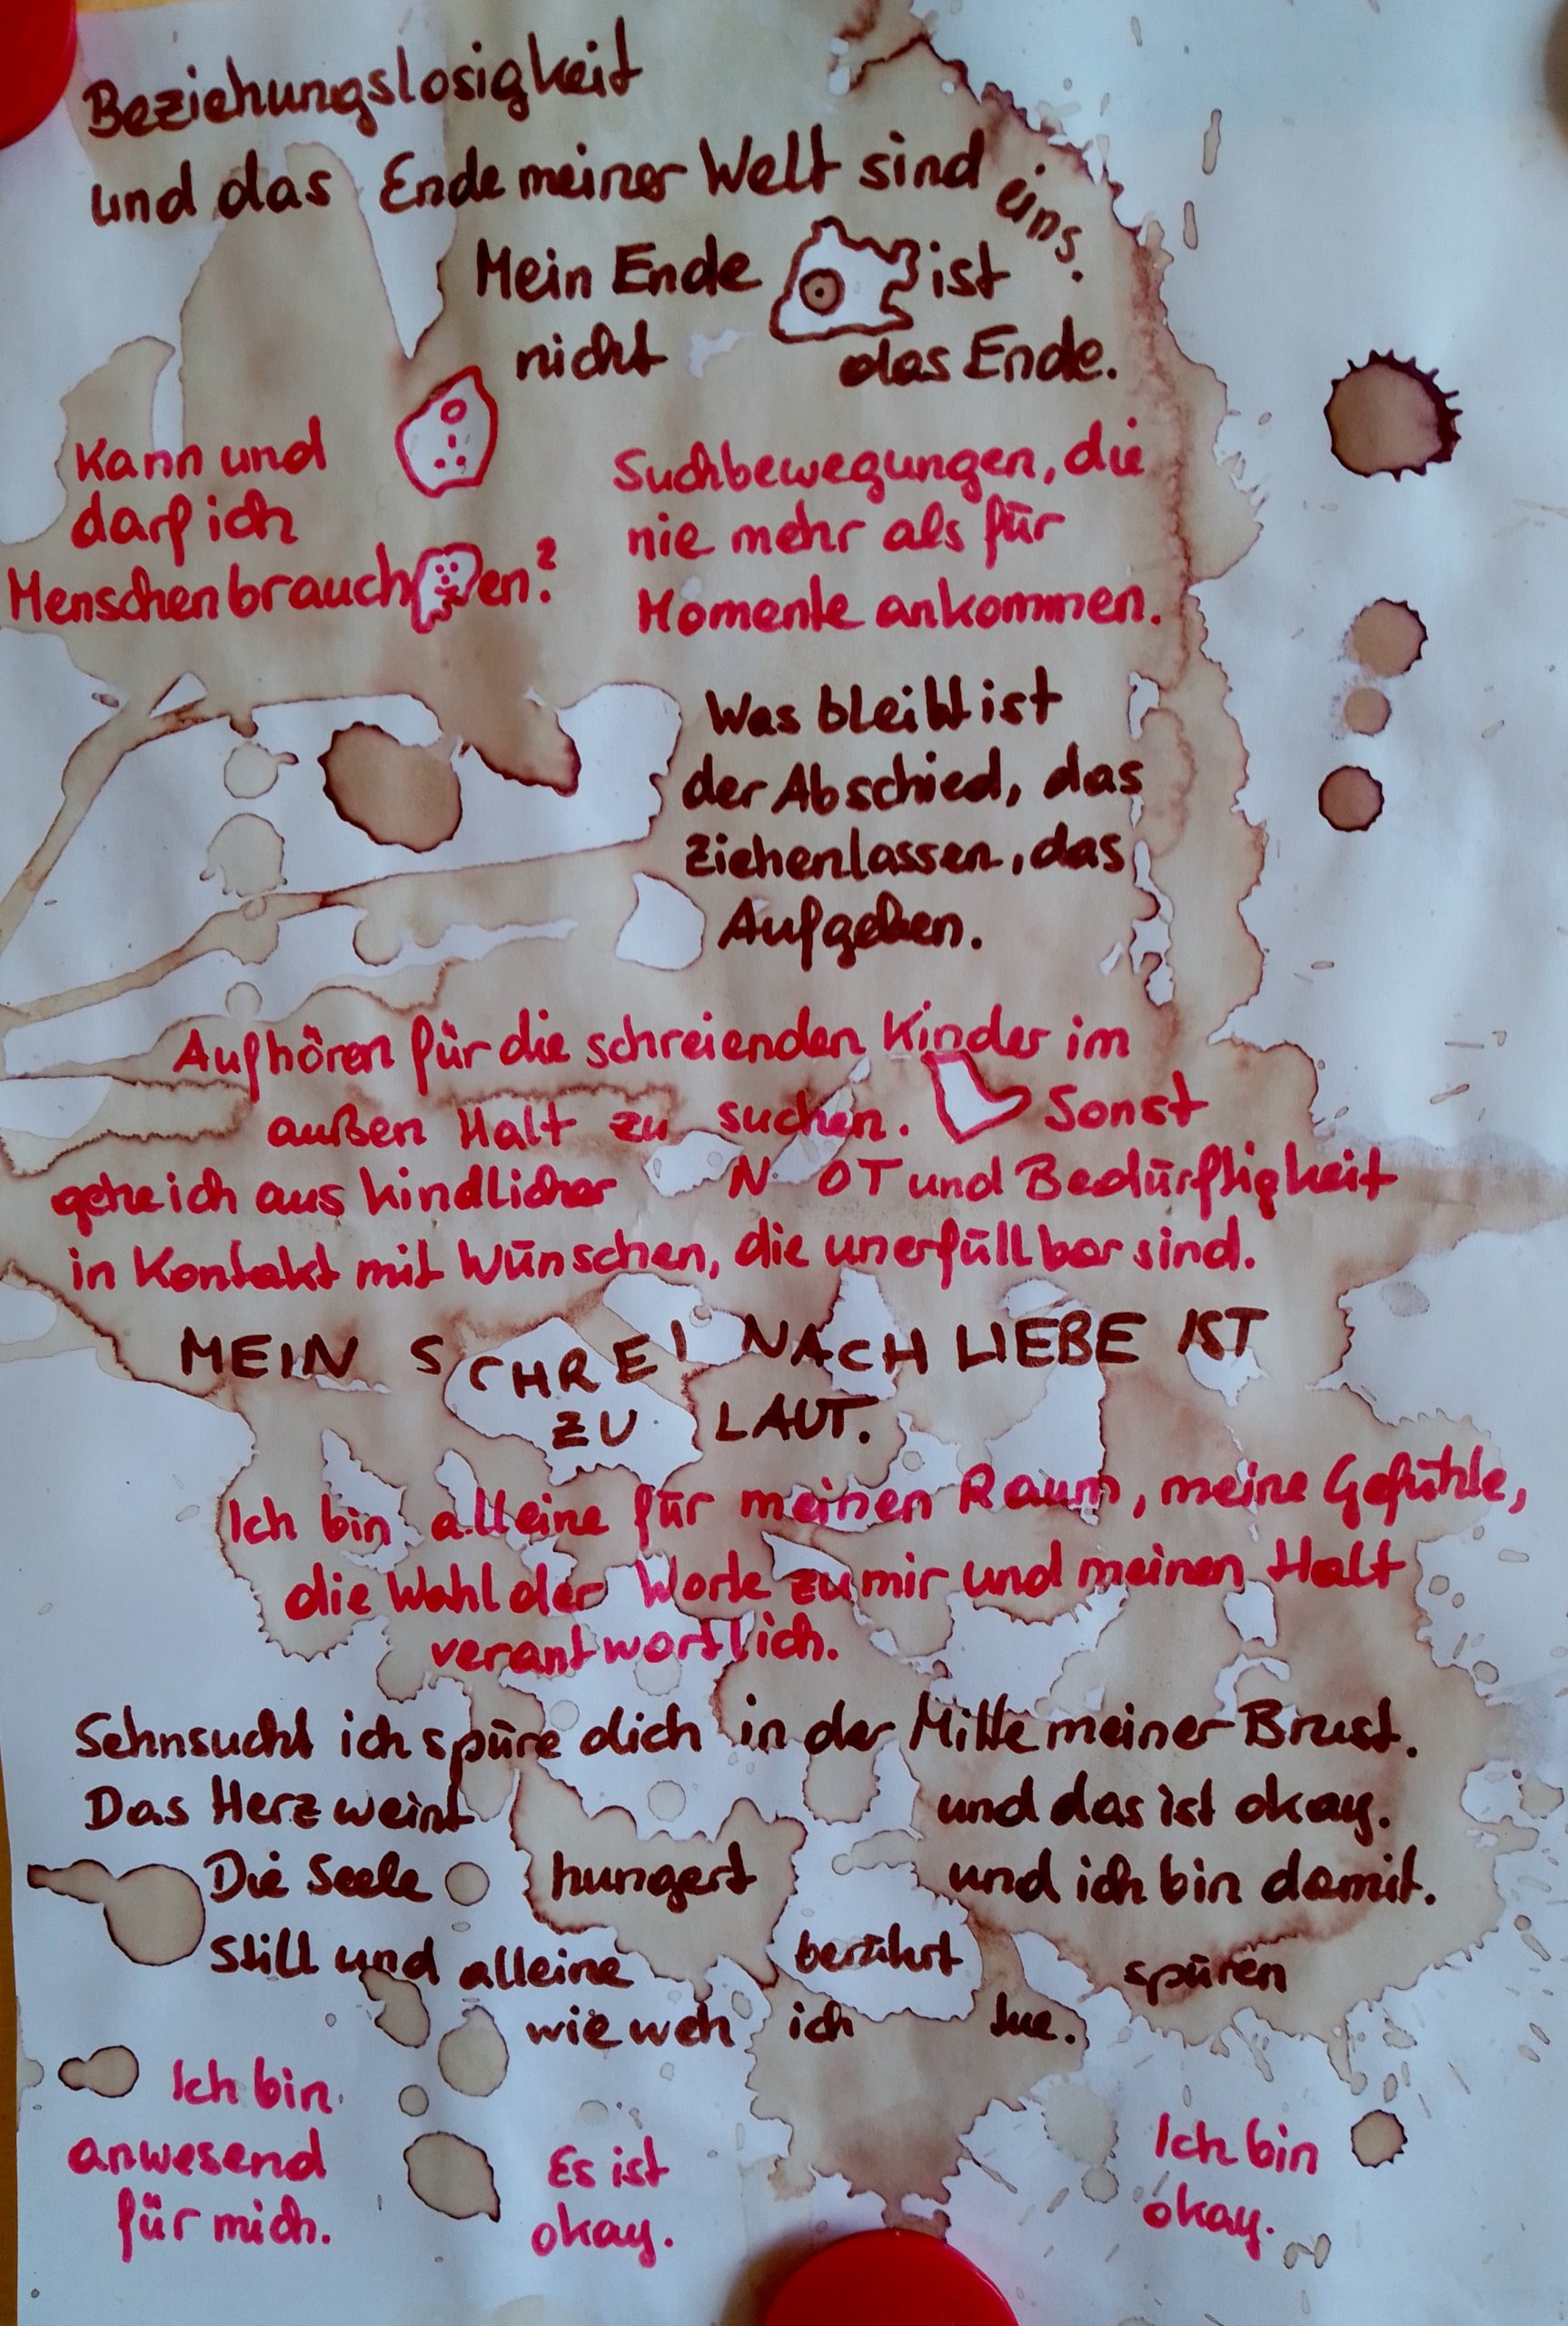 Beziehungslosigkeit
und das Ende meiner Welt sind eins.
Mein Ende ist
nicht das Ende.
Kann und
darf ich
Menschen brauchen?
Suchbewegungen, die
nie mehr als für
Momente ankommen.
Was bleibt ist
der Abschied, das
Ziehenlassen, das
Aufgeben.
Aufhören für die schreienden Kinder im
außen Halt zu suchen. Sonst
gehe ich aus kindlicher NOT und Bedürftigkeit
in Kontakt mit Wünschen, die unerfüllbar sind.
MEIN SCHREI NACH LIEBE IST
ZU LAUT.
Ich bin alleine für meinen Raum, meine Gefühle,
die Wahl der Worte zu mir und meinen Halt
verantwortlich.
Sehnsucht ich spüre dich in der Mitte meiner Brust.
Das Herz weint und das ist okay.
Die Seele hungert und ich bin damit.
Still und alleine berührt spüren
wie weh ich tue.
Ich bin
anwesend
für mich.
Es ist
okay.
Ich bin
okay.